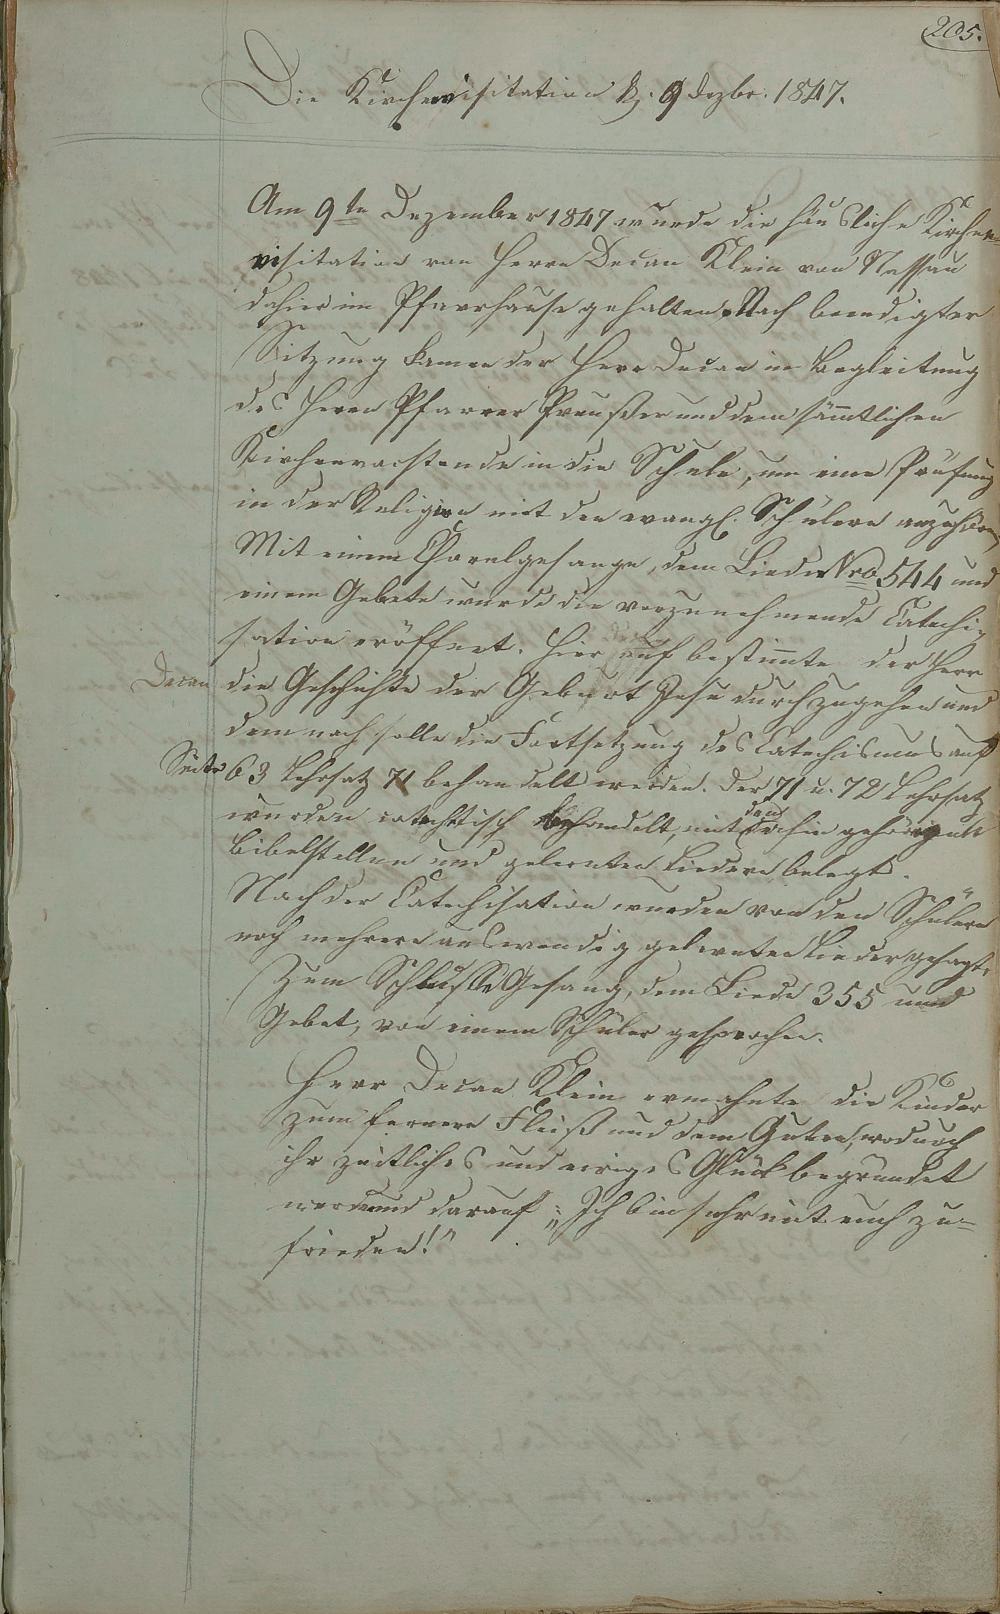 205.
Die Kirchenvisitation d. 9 Dezbr. 1847.
Am 9ten Dezember 1847 wurde die häusliche Kirchen-
visitation von Herrn Decan Klein von Nassau
dahier im Pfarrhause gehalten. Nach beendigter
Sitzung kamen der Herr Decan in Begleitung
des Herrn Pfarrer Preußer und dem sämmtlichen
Kirchenvorstande in die Schule, um eine Prüfung
in der Religion mit den evangl. Schülern anzuhören,
Mit einem Choralgesange, dem Liede Nro 544 und
einem Gebete wurde die vorzunehmende Catechi-
sation eröffnet. Hierauf bestimmte der Herr
Decan die Geschichte der Geburt Jesu durchzugehen und
demnach solle die Fortsetzung des Catechismus auf
Seite 63 Lehrsatz 71 behandelt werden. Der 71 u. 72 Lehrsatz
wurden catechetisch behandelt, mit den dahin gehörigen
Bibelstellen und gelernten Liedern belegt.
Nach der Catechisation wurden von den Schülern
noch mehrere auswendig gelernten Lieder gesagt,
Zum Schlusse Gesang, dem Liede 355 und
Gebet, von einem Schüler gesprochen.
Herr Decan Klein ermahnte die Kinder
zum fernern Fleiß und dem Guten, wodurch
ihr zeitliches und ewiges Glück begründet
werde und darauf: „Ich bin sehr mit euch zu-
frieden!"